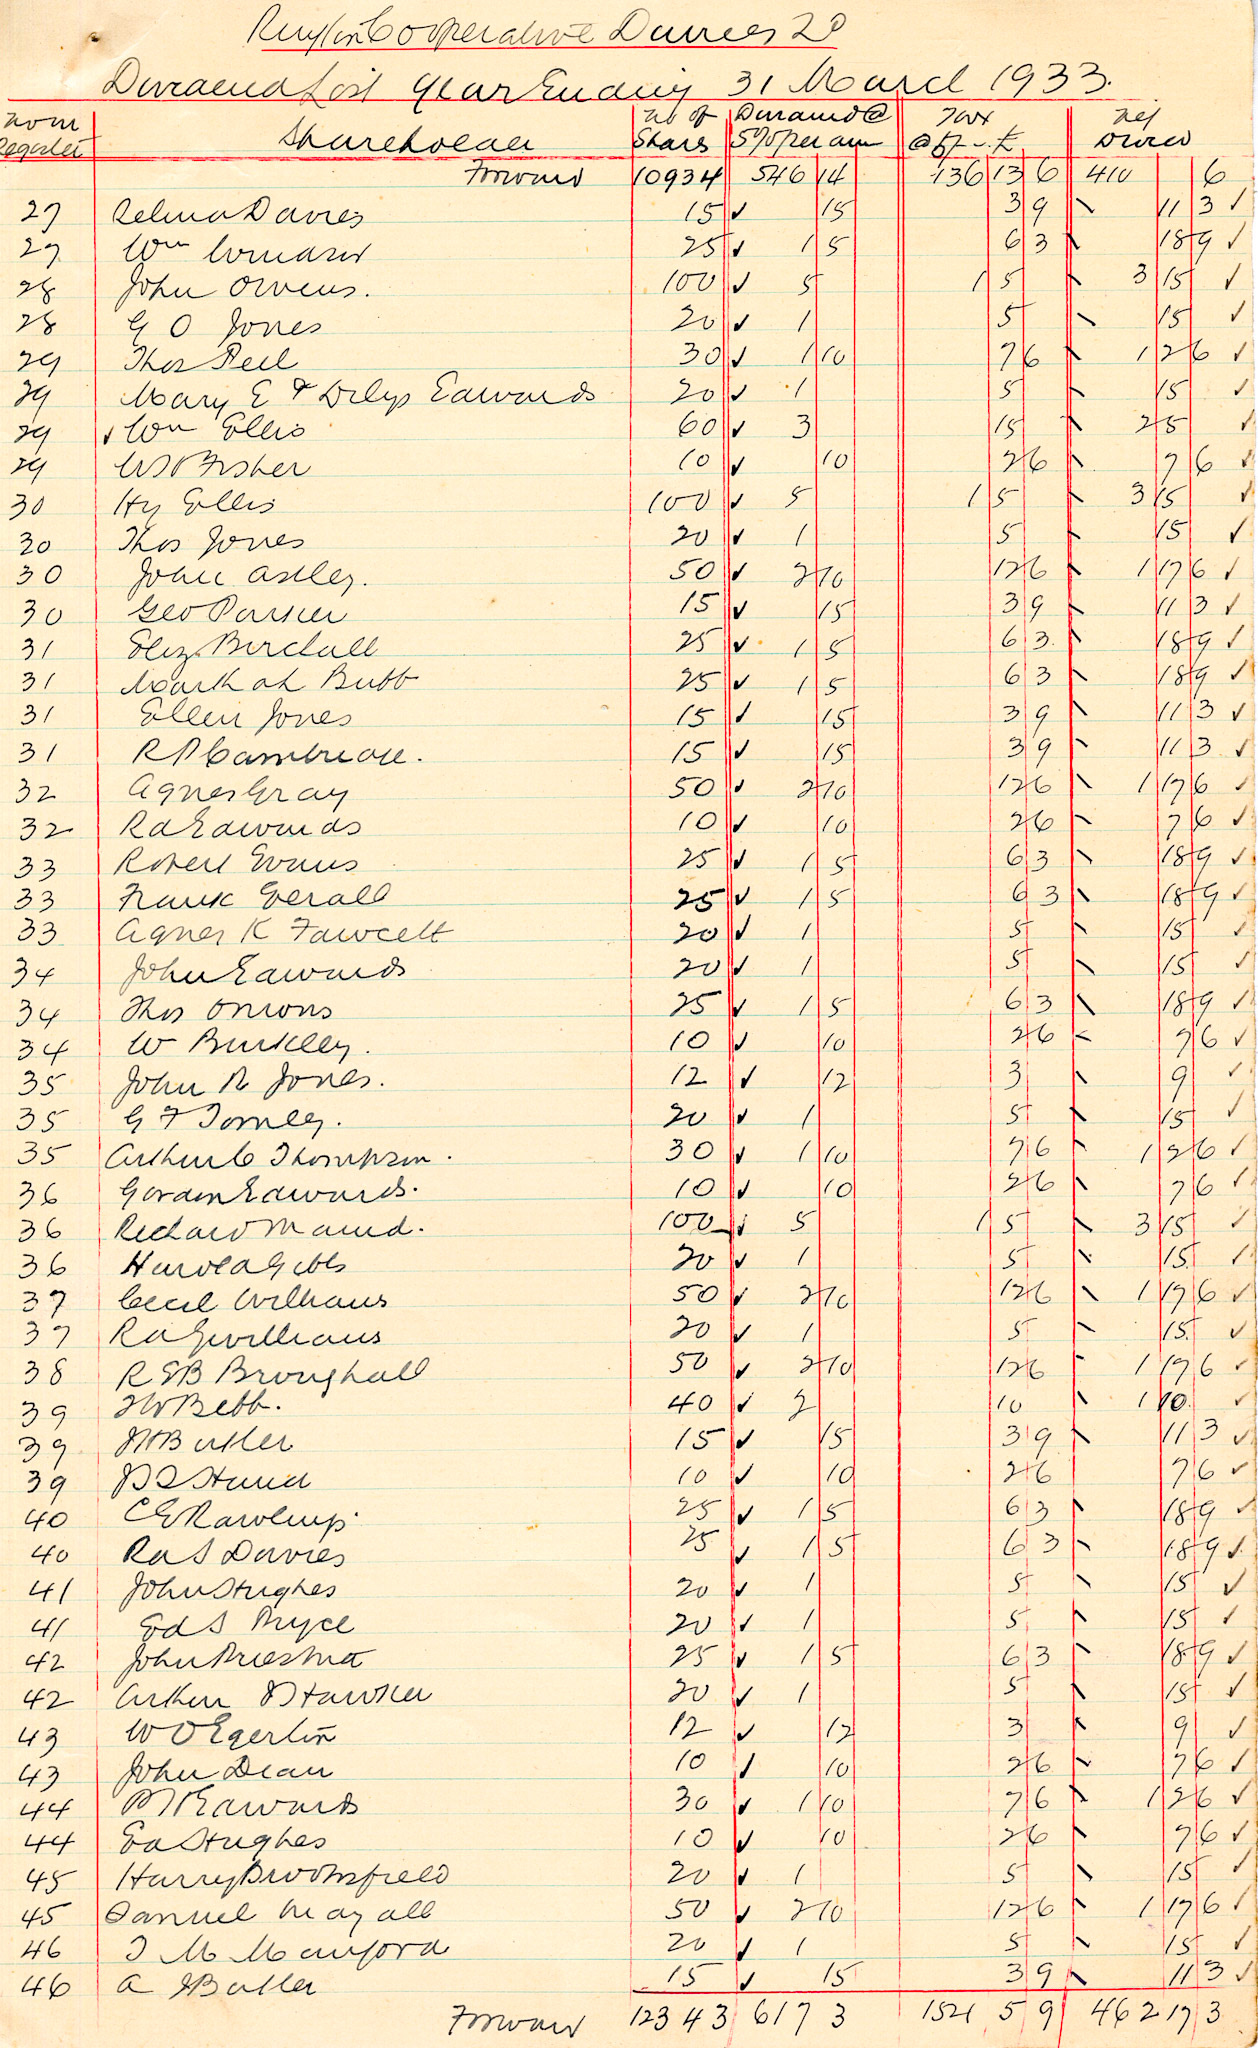 Ruyton Cooperative Dairies Ld
Dividend List Year Ending 31 March 1933.
from Register Shareholder No of Shares Dividend @ 5% per ann Tax @ 5/- in £ Net Divd
Forward 10934 546 14 136 13 6 410 6
27 Selina Davies 15 ✓ 15 3 9 11 3 ✓
27 Wm 25 ✓ 1 5 6 3 18 9 ✓
28 John Owens. 100 ✓ 5 1 5 3 15 ✓
28 G O Jones 20 ✓ 1 5 15 ✓
29 Thos Peel 30 ✓ 1 10 7 6 1 2 6 ✓
29 Mary E & Dilys Edwards 20 ✓ 1 5 15 ✓
29 Wm Ellis 60 ✓ 3 15 2 5 ✓
29 Fisher 10 ✓ 10 2 6 7 6 ✓
30 Hy Ellis 100 ✓ 5 1 5 3 15 ✓
30 Thos Jones 20 ✓ 1 5 15 ✓
30 John Astley. 50 ✓ 2 10 12 6 1 17 6 ✓
30 Geo Parker 15 ✓ 15 3 9 11 3 ✓
31 Eliz. Birchall 25 ✓ 1 5 6 3 18 9 ✓
31 Mark Bubb 25 ✓ 1 5 6 3 18 9 ✓
31 Ellen Jones 15 ✓ 15 3 9 11 3 ✓
31 R P Cambridge. 15 ✓ 15 3 9 11 3 ✓
32 Agnes Gray 50 ✓ 2 10 12 6 1 17 6 ✓
32 Rd Edwards 10 ✓ 10 2 6 7 6 ✓
33 Robert Evans 25 ✓ 1 5 6 3 18 9 ✓
33 Frank Everall 25 ✓ 1 5 6 3 18 9 ✓
33 Agnes K Fawcett 20 ✓ 1 5 15 ✓
34 John Edwards 20 ✓ 1 5 15 ✓
34 Thos Onions 25 ✓ 1 5 6 3 18 9 ✓
34 W Burkley. 10 ✓ 10 2 6 7 6 ✓
35 John R Jones. 12 ✓ 12 3 9 ✓
35 G F Tomley. 20 ✓ 1 5 15 ✓
35 Arthur C Thompson. 30 ✓ 1 10 7 6 1 2 6 ✓
36 Gordon Edwards. 10 ✓ 10 2 6 7 6 ✓
36 Richard 100 ✓ 5 1 5 3 15 ✓
36 Harold Gibbs 20 ✓ 1 5 15 ✓
37 Cecil Williams 50 ✓ 2 10 12 6 1 17 6 ✓
37 Rd Gwilliams 20 ✓ 1 5 15 ✓
38 R E B Broughall 50 ✓ 2 10 12 6 1 17 6 ✓
39 Bebb. 40 ✓ 2 10 1 10 ✓
39 Butler 15 ✓ 15 3 9 11 3 ✓
39 10 ✓ 10 2 6 7 6 ✓
40 C E Rawlings 25 ✓ 1 5 6 3 18 9 ✓
40 Rd S Davies 25 ✓ 1 5 6 3 18 9 ✓
41 John Hughes 20 ✓ 1 5 15 ✓
41 Ed S Pryce 20 ✓ 1 5 15 ✓
42 John 25 ✓ 1 5 6 3 18 9 ✓
42 Arthur 20 ✓ 1 5 15 ✓
43 W O Egerton 12 ✓ 12 3 9 ✓
43 John Dean 10 ✓ 10 2 6 7 6 ✓
44 Edwards 30 ✓ 1 10 7 6 1 2 6 ✓
44 Ed Hughes 10 ✓ 10 2 6 7 6 ✓
45 Harry Broomfield 20 ✓ 1 5 15 ✓
45 Samuel Mayall 50 ✓ 2 10 12 6 1 17 6 ✓
46 T M Manford 20 ✓ 1 5 15 ✓
46 A Butler 15 ✓ 15 3 9 11 3 ✓
Forward 12343 617 3 154 5 9 462 17 3